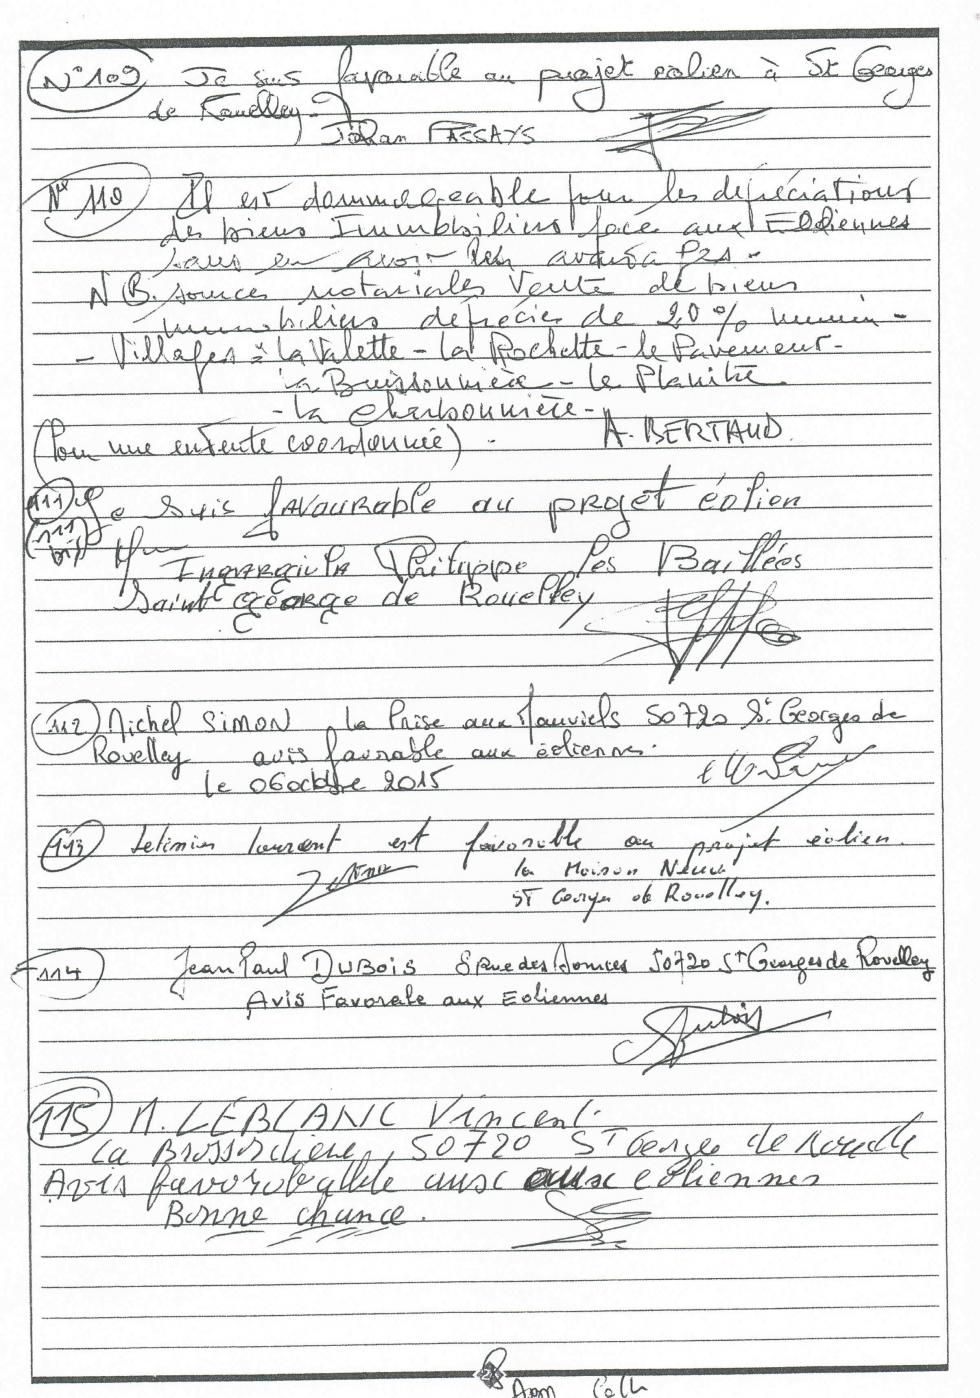 N°109 Je suis favorable au projet éolien à St Georges
de Rouelley
Johan PASSAYS
N° 110 Il est dommageable pour les dépréciations
des biens Immobiliers face aux Eoliennes
sans en avoir les avantages -
N B. sources notariales Vente de biens
immobiliers déprécier de 20 % minim -
- Villages : la Valette - la Rochette - le Pavement -
la Buissonnière - le Planitre
- la charbonnière -
(Pour une entente coordonnée) - A. BERTAUD
111 Je suis favourable au projet éolien
111 bis
Philippe les Baillées
Saint George de Rouelley
112 Michel SIMON la Prise aux Mauviels 50720 St Georges de
Rouelley avis favorable aux éoliennes.
le 06 octobre 2015
113 Letimier laurent est favorable au projet éolien.
la Maison Neuve
ST Georges de Rouelley.
114 Jean Paul DUBOIS 8 rue des Sources 50720 St Georges de Rouelley
Avis Favorale aux Eoliennes
Dubois
115 M. LEBLANC Vincent.
La Brossardiere, 50720 ST Georges de Rouelle
Avis favoroballe aux aux eoliennes
Bonne chance.